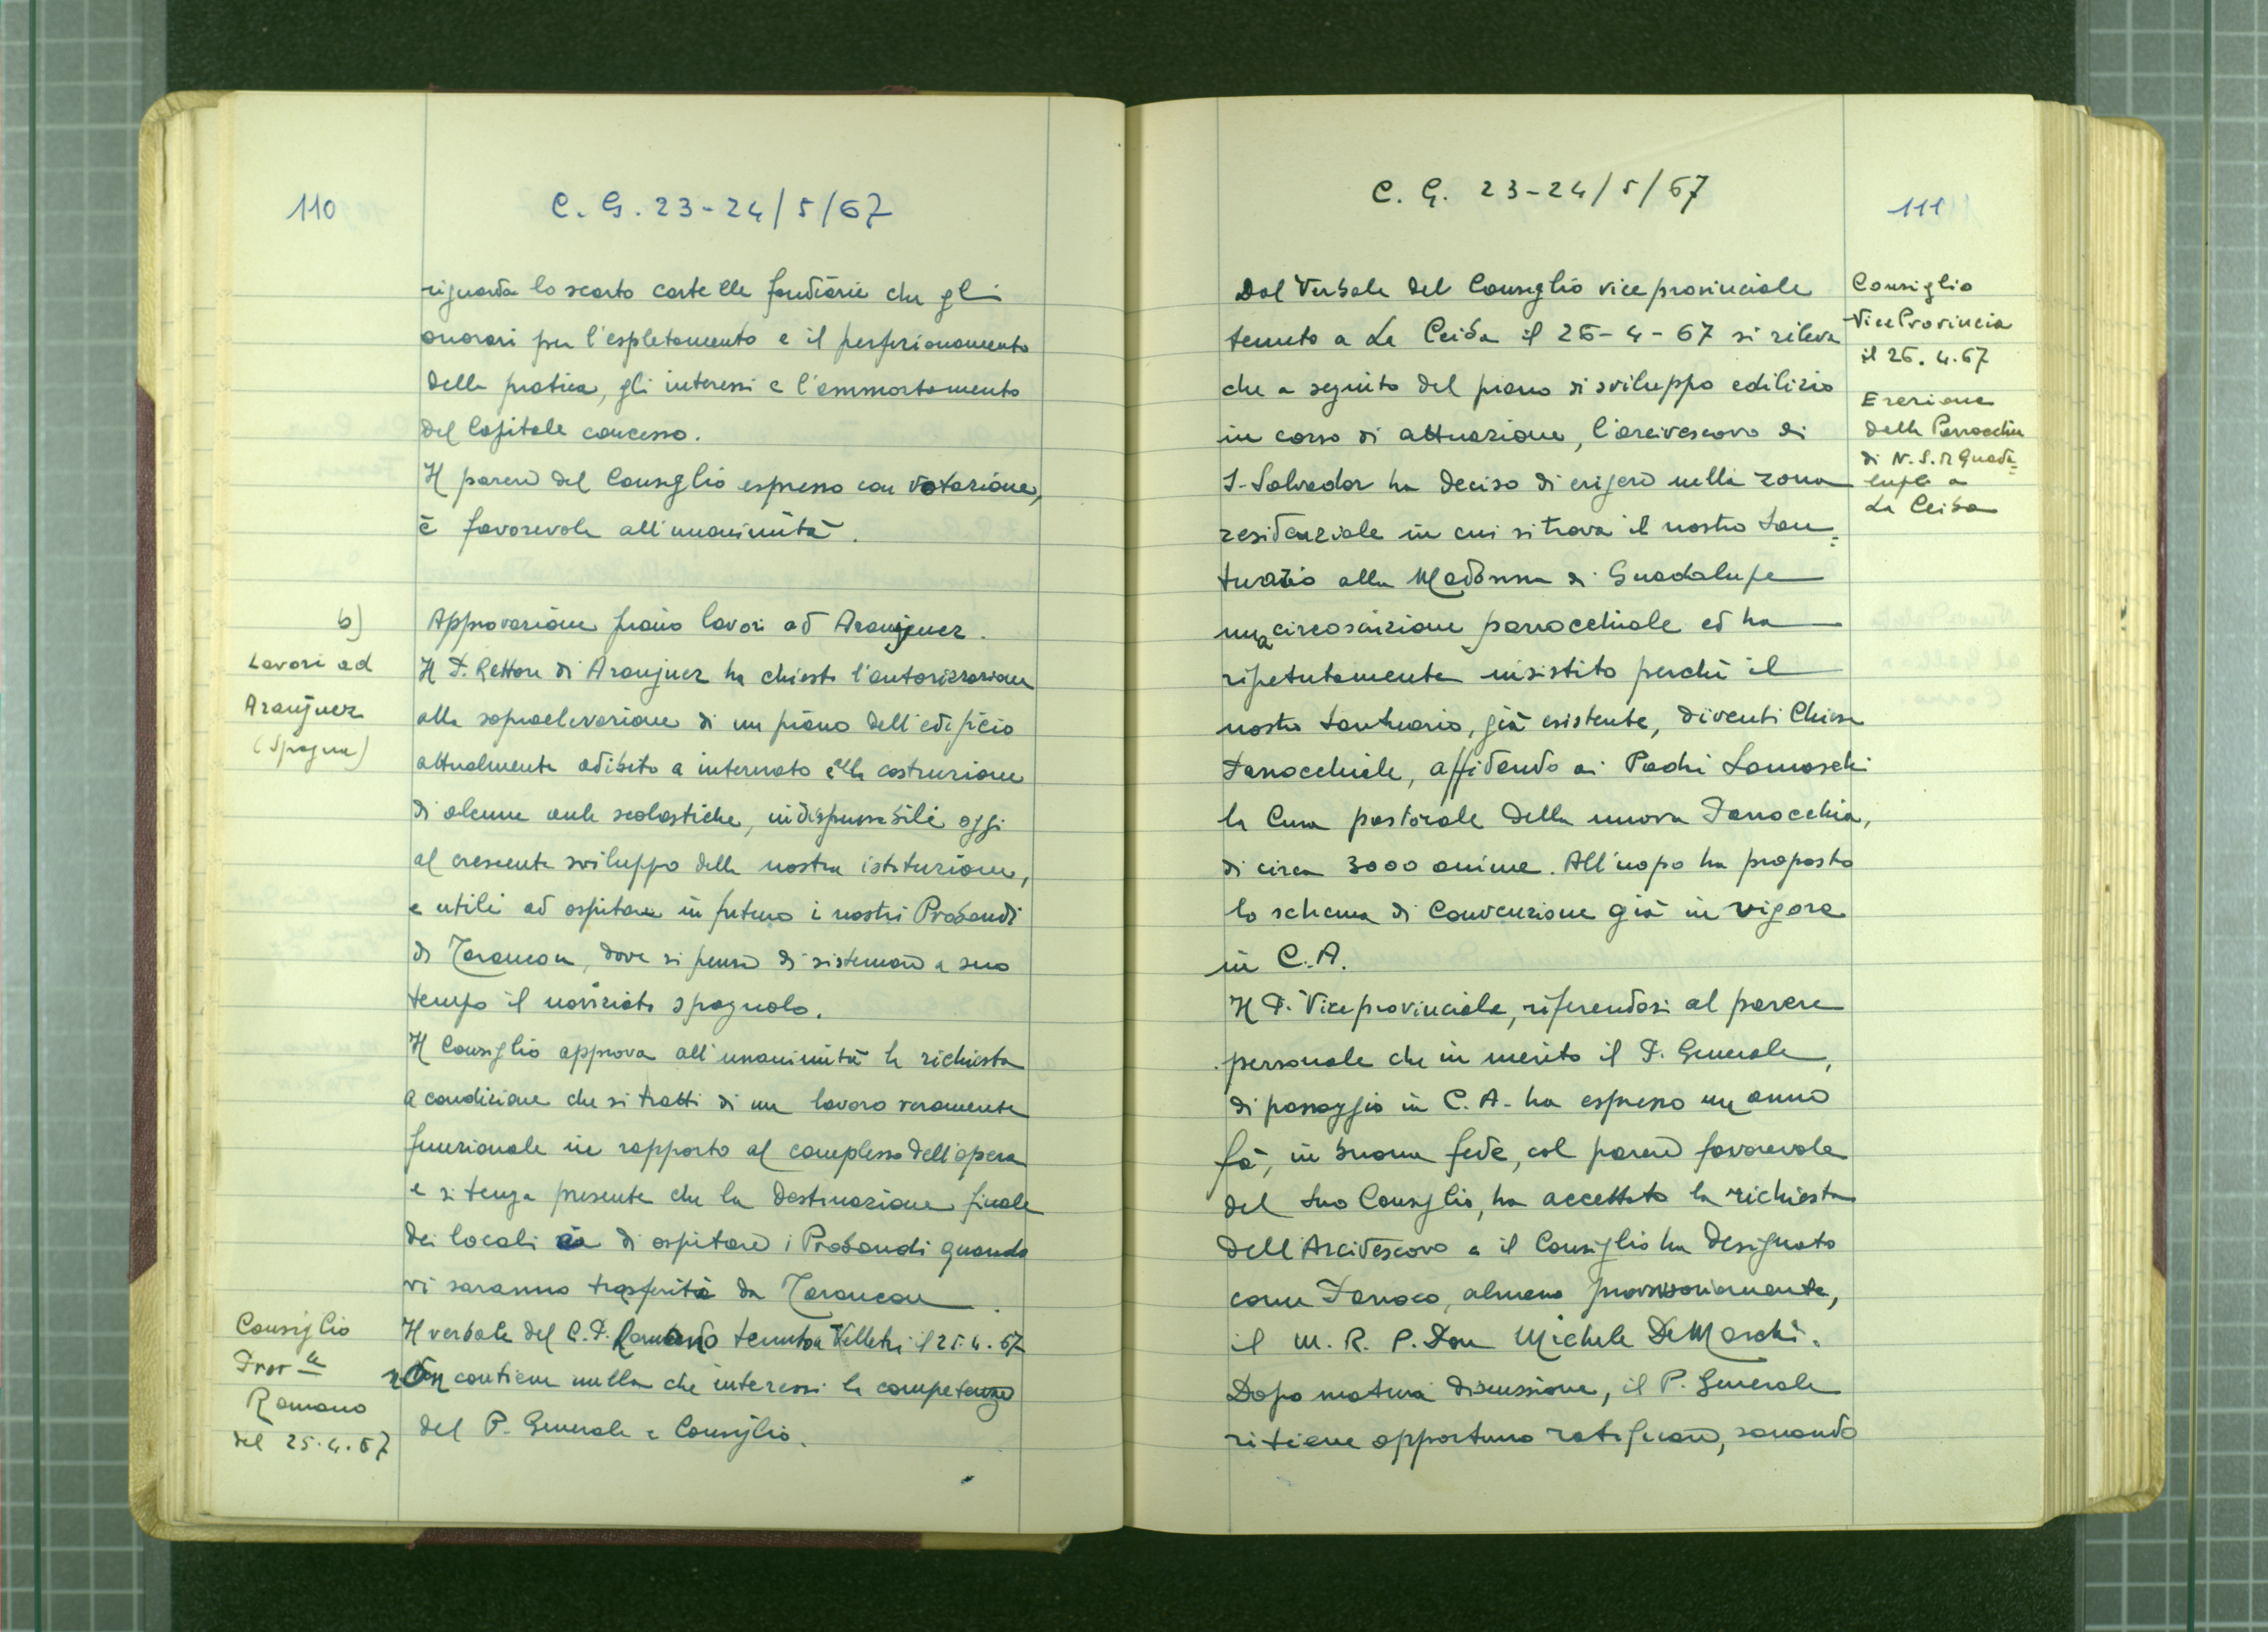 110
C. G. 23-24/5/67
riguarda lo scarto cartelle fondiarie che gli
onorari per l'espletamento e il perfezionamento
della pratica, gli interessi e l'ammortamento
del Capitale concesso.
Il parere del Consiglio espresso con votazione,
è favorevole all'unanimità.
b)
Lavori ad
Aranjuez
(Spagna)
Approvazione piano lavori ad Aranjuez.
Il P. Rettore di Aranjuez ha chiesto l'autorizzazione
alla sopraelevazione di un piano dell'edificio
attualmente adibito a internato e alla costruzione
di alcune aule scolastiche, indispensabili oggi
al crescente sviluppo della nostra istituzione,
e utili ad ospitare in futuro i nostri Probandi
di Tarancon, dove si pensa di sistemare a suo
tempo il noviziato spagnolo.
Il Consiglio approva all'unanimità la richiesta
a condizione che si tratti di un lavoro veramente
funzionale in rapporto al complesso dell'opera
e si tenga presente che la destinazione finale
dei locali è di ospitare i Probandi quando
vi saranno trasferiti da Tarancon.
Consiglio
Prov.le
Romano
del 25.4.67
Il verbale del C.P. Romano tenuto a Velletri il 25.4.67
non contiene nulla che interessi la competenza
del P. Generale e Consiglio.
C. G. 23-24/5/67
111
Consiglio
Vice Provincia
il 26.4.67
Erezione
della Parrocchia
di N.S. di Guada=
lupe a
La Ceiba
Dal Verbale del Consiglio vice provinciale
tenuto a La Ceiba il 26-4-67 si rileva
che a seguito del piano di sviluppo edilizio
in corso di attuazione, l'arcivescovo di
S. Salvador ha deciso di erigere nella zona
residenziale in cui si trova il nostro San=
tuario alla Madonna di Guadalupe
una circoscrizione parrocchiale ed ha
ripetutamente insistito perché il
nostro Santuario, già esistente, diventi Chiesa
Parrocchiale, affidando ai Padri Somaschi
la Cura pastorale della nuova Parrocchia,
di circa 3000 anime. All'uopo ha proposto
lo schema di Convenzione già in vigore
in C.A.
Il P. Viceprovinciale, riferendosi al parere
personale che in merito il P. Generale,
di passaggio in C.A. ha espresso un anno
fà, in buona fede, col parere favorevole
del Suo Consiglio, ha accettato la richiesta
dell'Arcivescovo e il Consiglio ha designato
come Parroco, almeno provvisoriamente,
il M. R. P. Don Michele De Marchi.
Dopo matura discussione, il P. Generale
ritiene opportuno ratificare, sanando